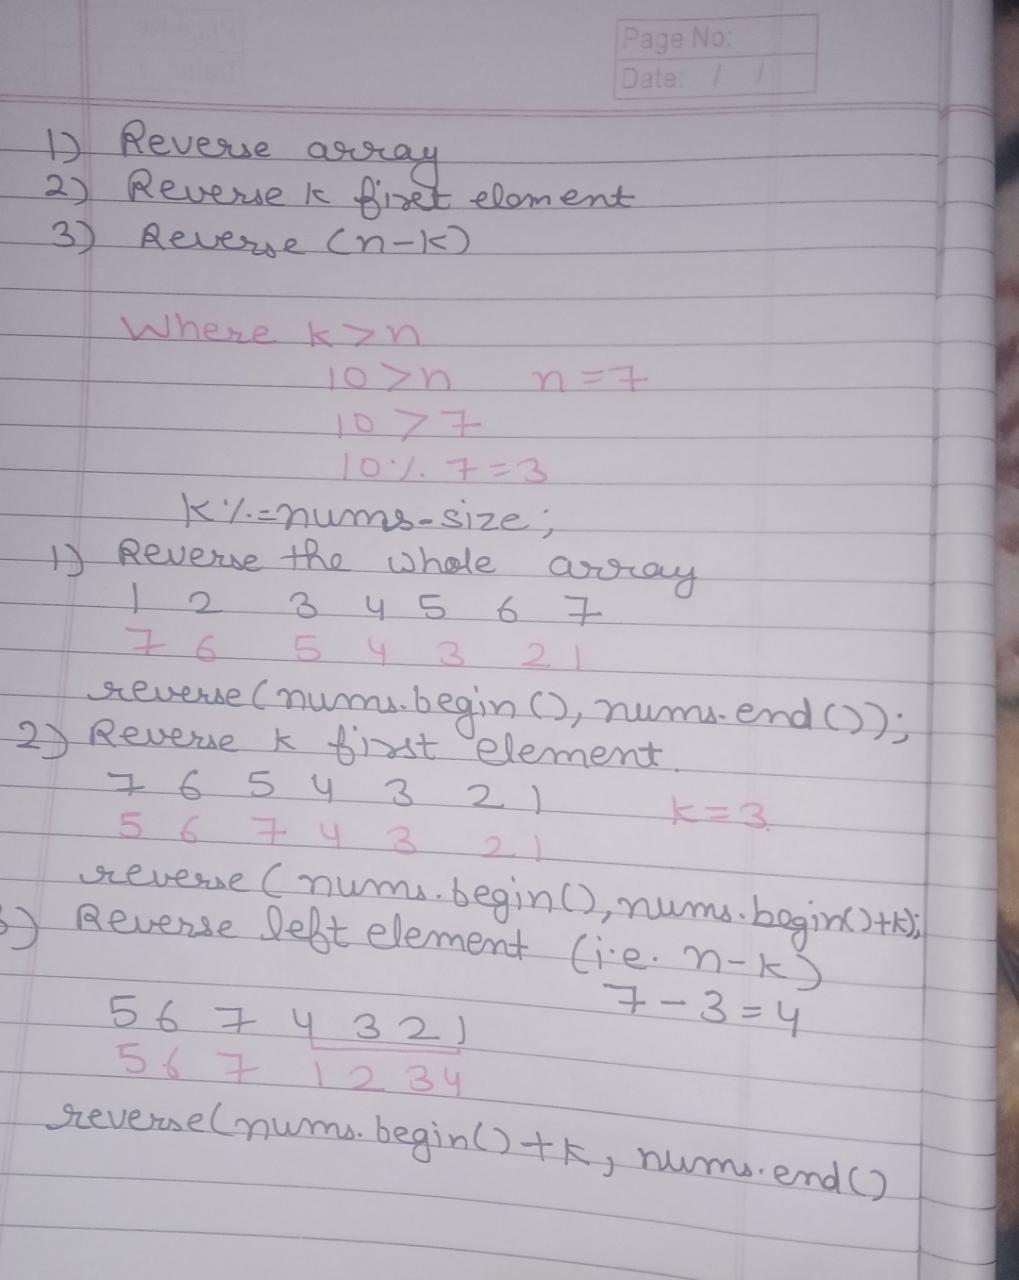 Page No:
Date: / /
1) Reverse array
2) Reverse k first element
3) Reverse (n-k)
Where k>n
10>n n=7
10>7
10%7=3
k%=nums-size;
1) Reverse the whole array
1 2 3 4 5 6 7
7 6 5 4 3 2 1
reverse(nums.begin(), nums.end());
2) Reverse k first element.
7 6 5 4 3 2 1 k=3.
5 6 7 4 3 2 1
reverse(nums.begin(), nums.begin()+k);
3) Reverse left element (i.e. n-k)
7-3=4
5 6 7 4 3 2 1
5 6 7 1 2 3 4
reverse(nums.begin()+k, nums.end()